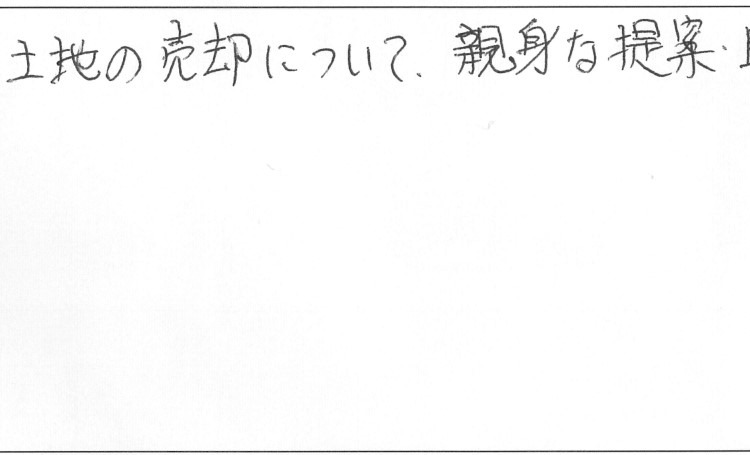 土地の売却について、親身な提案・